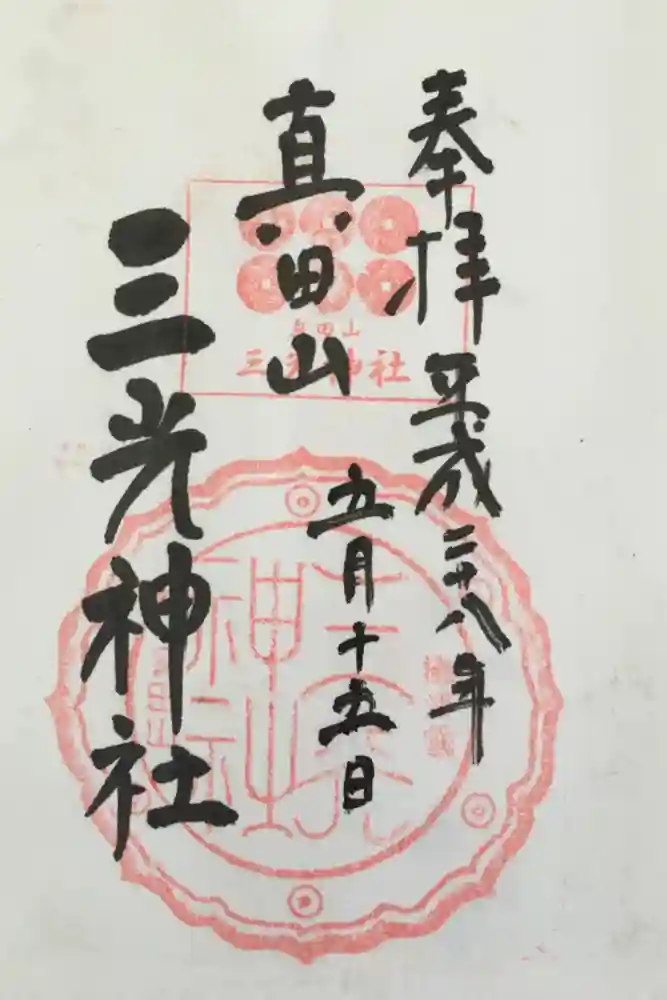 奉拝 平成二十八年
五月十五日
真田山
三光神社
真田山
三光神社
三光神社